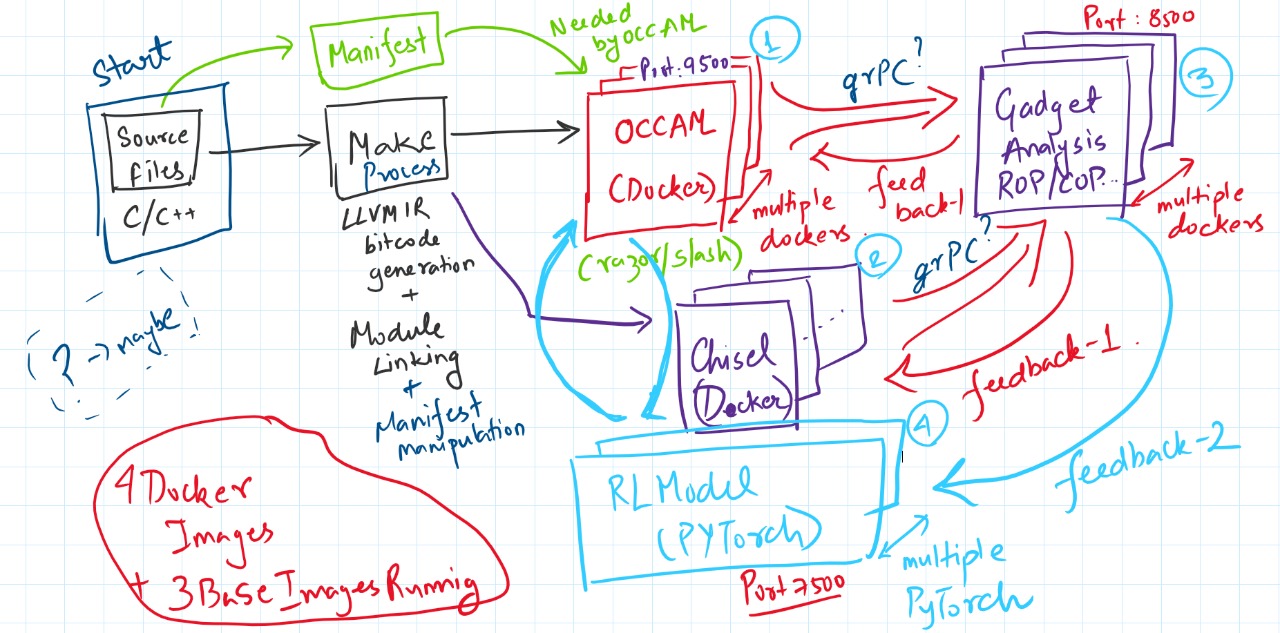 Start
Source
files
C/C++
? -> maybe
Manifest
Needed
by OCCAM
Make
Process
LLVM IR
bitcode
generation
+
Module
Linking
+
Manifest
manipulation
1
Port: 9500
OCCAM
(Docker)
multiple
dockers.
(razor/slash)
grPC?
feed
back-1
Port: 8500
3
Gadget
Analysis
ROP/COP..
multiple
dockers
2
Chisel
(Docker)
....
grPC?
feedback-1.
feedback-2
4
RL Model
(PYTorch)
Port 7500
multiple
PyTorch
4 Docker
Images
+ 3 Base Images Runnig